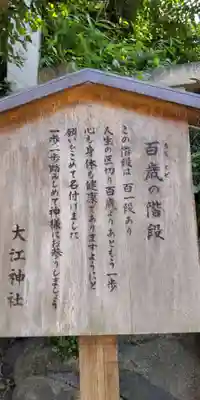 百歳の階段
この階段は 百一段あり
人生の区切り百歳よりあともう一歩
心も身体も健康でありますようにと
願いをこめて名付けました
一歩一歩踏みしめて神様にお参りしましょう
大江神社